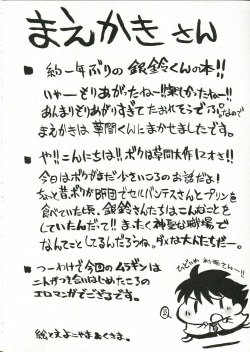 まえかき さん
■ 約一年ぶりの 銀鈴くんの本!!
いやーもりあがったねー!! 楽しかったねー!!
あんまりもりあがりすぎて たおれそうです。なので
まえかきは 草間くんにまかせましたです。
■ や!! こんにちは!! ボクは草間大作12才さ!!
今日はボクがまだ少さいころのお話だよ!
ちょっと昔、ボクが師団でセルバンテスさんとプリンを
食べていた頃、銀鈴さんたちはこんなことを
していたんだって!! まったく神聖な職場で
なんてことしてるんだろうね。ダメな大人たちだー。
■ つーわけで今回のムラギンは
二人がつき合いはじめたころの
エロマンガでござるです。
絵と文 よこやまおくさま。